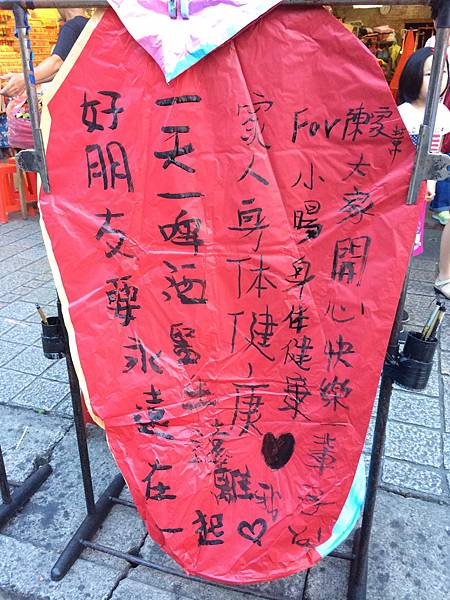 陳家
大家開心快樂一輩子
For 小陽身体健康
家人身体健康
一天一啤酒醫生遠離我
好朋友要永遠在一起